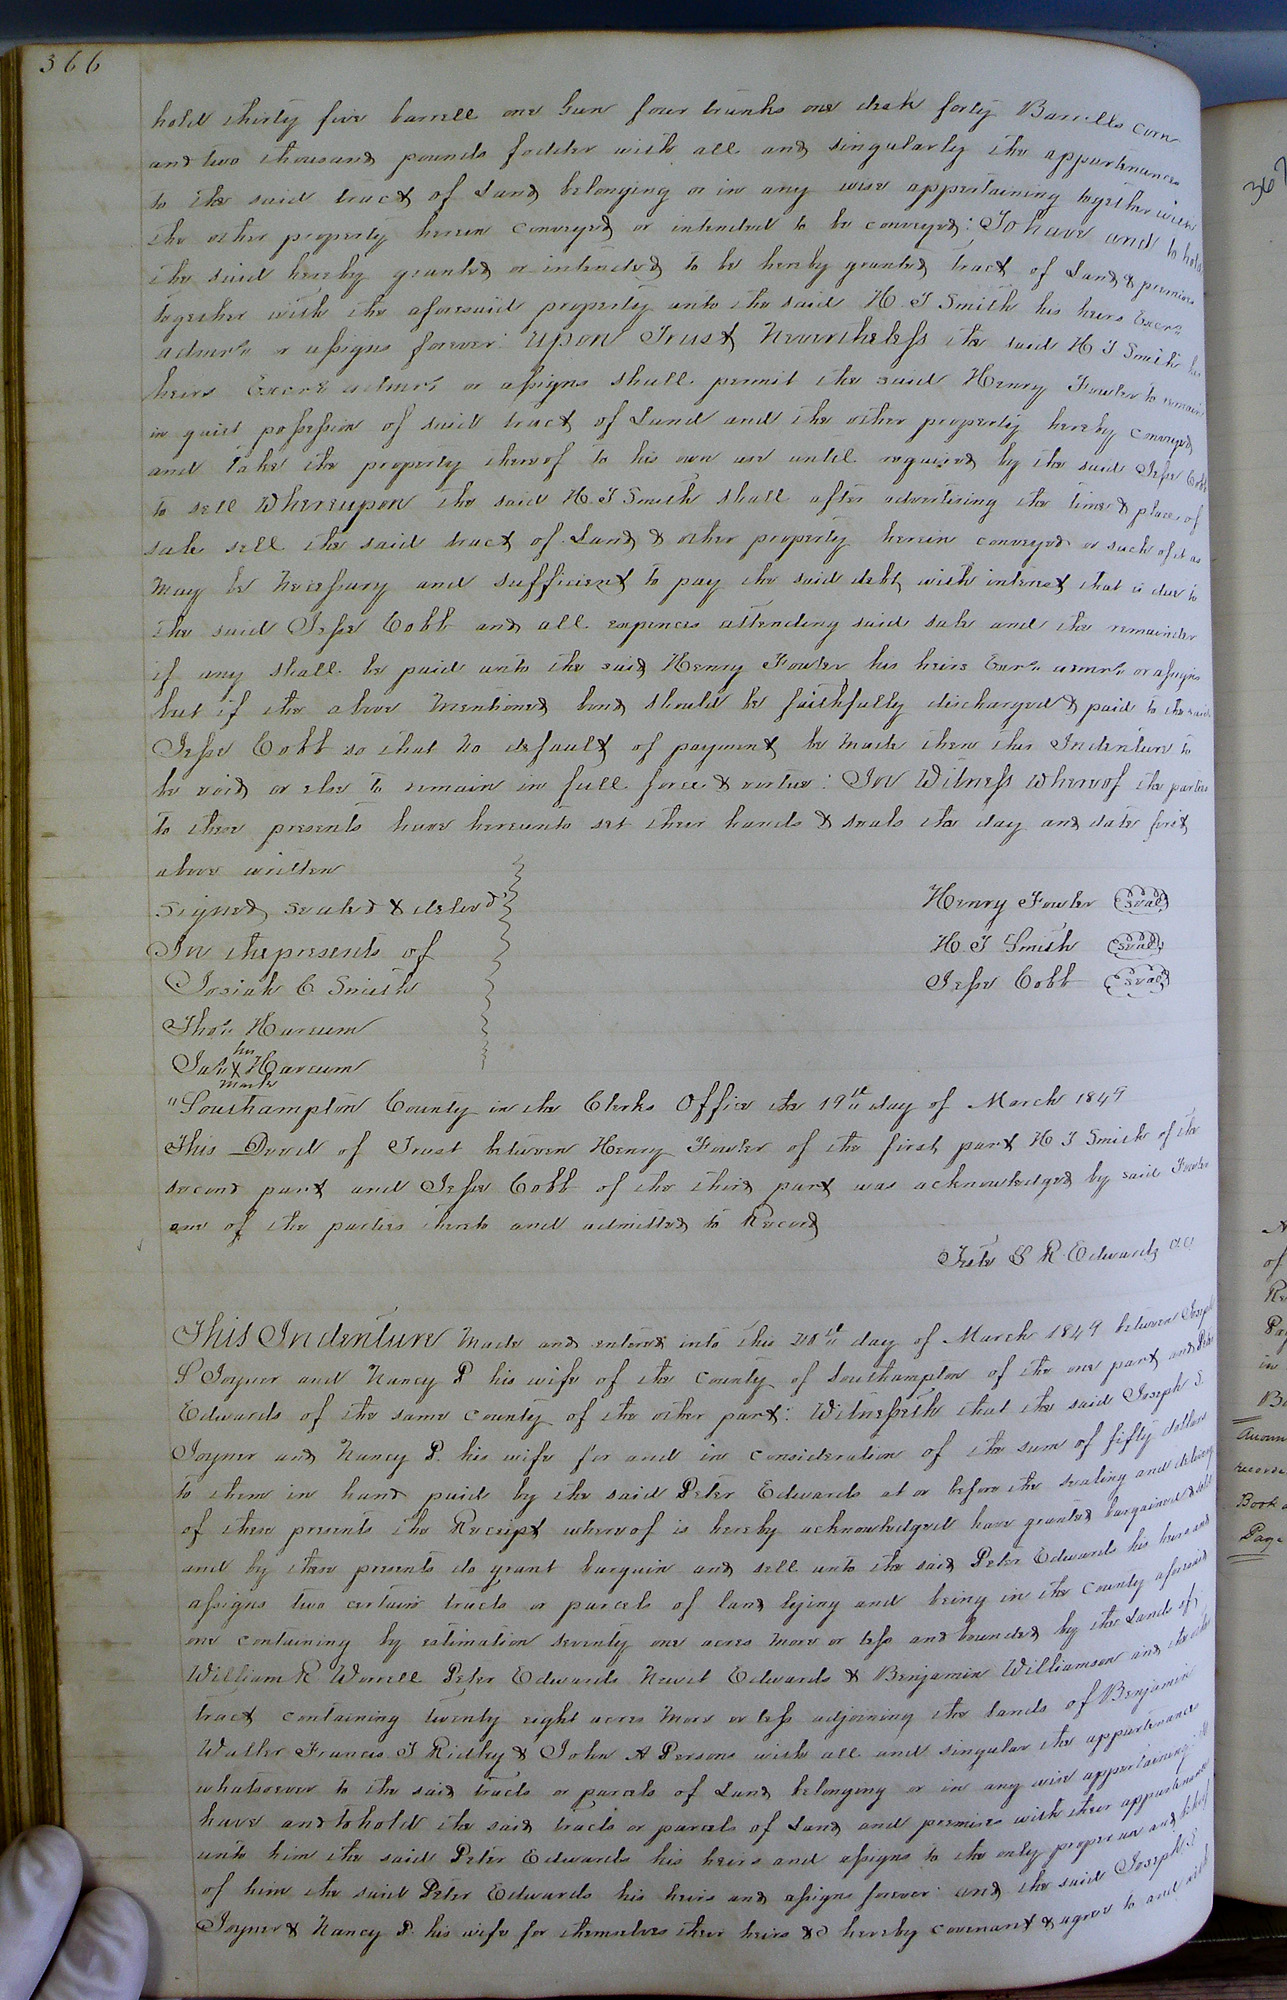 366
hold thirty five barrell one Gun four trunks one desk forty Barrells corn
and two thousand pounds fodder with all and singularly the appurtenances
to the said tract of Land belonging or in any wise appertaining together with
the other property herein conveyed or intended to be conveyed: To have and to hold
the said hereby granted or intended to be hereby granted tract of Land & premises
together with the aforesaid property unto the said H. T Smith his heirs Excrs
admrs or assigns forever: Upon Trust Nevertheless the said H T Smith his
heirs Excrs admrs or assigns shall permit the said Henry Fowler to remain
in quiet possession of said tract of Land and the other property hereby conveyed
and take the property thereof to his own use until required by the said Jesse Cobb
to sell whereupon the said H. T Smith shall after advertising the time & place of
sale sell the said tract of Land & other property herein conveyed or such of it as
may be necessary and sufficient to pay the said debt with interest that is due to
the said Jesse Cobb and all expences attending said sale and the remainder
if any shall be paid unto the said Henry Fowler his heirs Excrs admrs or assigns
but if the above mentioned bond should be faithfully discharged & paid to the said
Jesse Cobb so that no default of payment be made then this Indenture to
be void or else to remain in full force & vertue: In Witness whereof the parties
to these presents have hereunto set their hands & seals the day and date first
above written
Signed sealed & delivd
Henry Fowler Seal
In the presents of
H. T Smith Seal
Josiah C Smith
Jesse Cobb Seal
Thos Harcum
his
Jas X Harcum
mark
"Southampton County in the Clerks Office the 19th day of March 1849
This Deed of Trust between Henry Fowler of the first part H T Smith of the
second part and Jesse Cobb of the third part was acknowledged by said Fowler
one of the parties thereto and admitted to Record
Teste L R Edwards CC
This Indenture made and entered into this 20th day of March 1849 between Joseph
S Joyner and Nancy P his wife of the County of Southampton of the one part and Peter
Edwards of the same County of the other part: Witnesseth that the said Joseph S.
Joyner and Nancy P. his wife for and in consideration of the sum of fifty dollars
to them in hand paid by the said Peter Edwards at or before the sealing and delivery
of these presents the Receipt whereof is hereby acknowledged have granted bargained & sold
and by these presents do grant bargain and sell unto the said Peter Edwards his heirs and
assigns two certain tracts or parcels of land lying and being in the County aforesaid
one containing by estimation seventy one acres more or less and bounded by the Lands of
William R Worrell Peter Edwards Newit Edwards & Benjamin Williamson and the other
tract containing twenty eight acres more or less adjoining the lands of Benjamin
Waller Francis T Ridley & John A Persons with all and singular the appurtenances
whatsoever to the said tracts or parcels of Land belonging or in any wise appertaining: To
have and to hold the said tracts or parcels of Land and premises with their appurtenances
unto him the said Peter Edwards his heirs and assigns to the only proper use and behoof
of him the said Peter Edwards his heirs and assigns forever: and the said Joseph S
Joyner & Nancy P. his wife for themselves their heirs &c hereby covenant & agree to and with
367
of
in
recorde
Book
Page